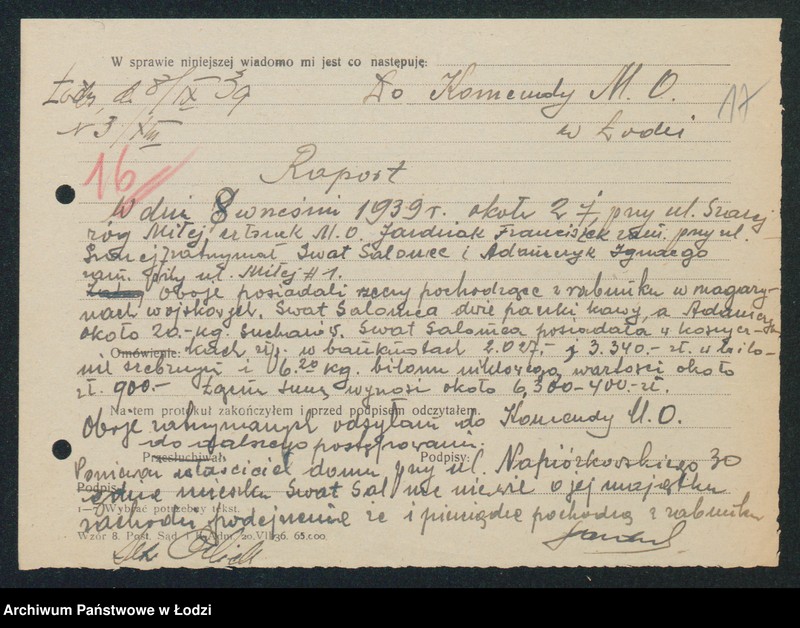 W sprawie niniejszej wiadomo mi jest co następuję:
Łódź, d. 8/IX 39 Do Komendy M. O. 17
N 3/XIII w Łodzi
16
Raport
W dniu 8 września 1939 r. około 2 przy ul. Szarej
róg Miłej członek M. O. Jardniak Franciszek zam. przy ul.
Szarej zatrzymał Swat Salomeę i Adamczyk Ignacego
zam. przy ul. Miłej # 1.
Oboje posiadali rzeczy pochodzące z rabunku w magazy-
nach wojskowych. Swat Salomea dwie paczki kawy, a Adamczyk
około 20.- kg. sucharów. Swat Salomea posiadała w koszycz-
Omówienie: kach zł. w banknotach 2.027,- i 3.340.- zł. w bilo-
nie srebrnym i 6.20 kg. bilonu niklowego wartości około
zł. 900.- Łącznie suma wynosi około 6,300-400.- zł.
Na tem protokuł zakończyłem i przed podpisem odczytałem.
Oboje zatrzymanych odsyłam do Komendy M. O.
do dalszego postępowania.
Przesłuchiwał: Podpisy:
Ponieważ właściciel domu przy ul. Napiórkowskiego 30
Podpis:
gdzie mieszka Swat Salomea nie wie o jej majątku
1—) Wybrać potrzebny tekst.
zachodzi podejrzenie że i pieniądze pochodzą z rabunku
Wzór 8. Post. Sąd. i Adm. 20.VII 36. 65.000.
Archiwum Państwowe w Łodzi